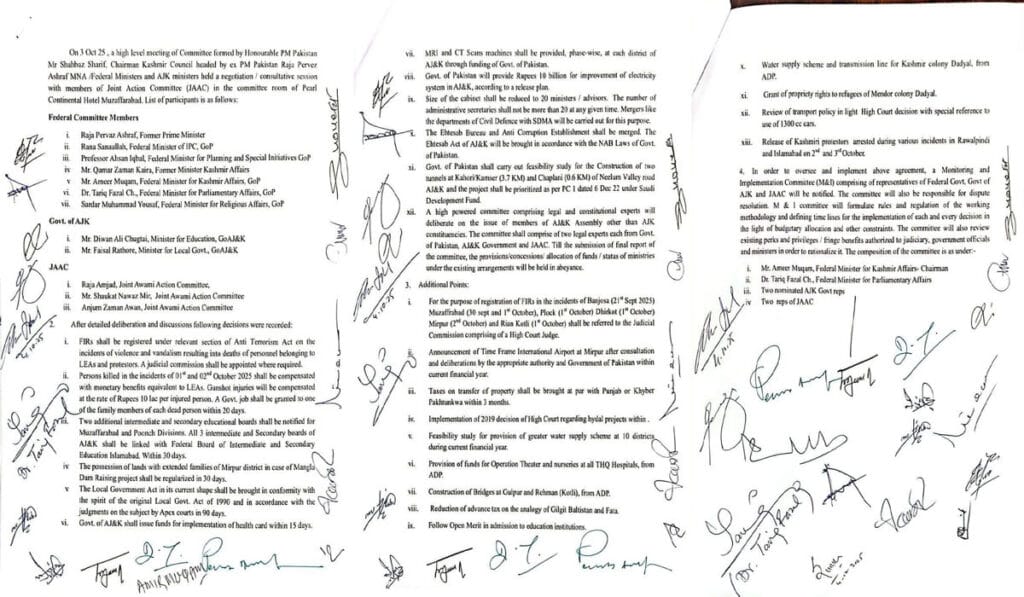 On 3 Oct 25, a high level meeting of Committee formed by Honourable PM Pakistan
Mr Shahbaz Sharif, Chairman Kashmir Council headed by ex PM Pakistan Raja Pervez
Ashraf MNA /Federal Ministers and AJK ministers held a negotiation / consultative session
with members of Joint Action Committee (JAAC) in the committee room of Pearl
Continental Hotel Muzaffarabad. List of participants is as follows:
Federal Committee Members
i. Raja Pervaz Ashraf, Former Prime Minister
ii. Rana Sanaullah, Federal Minister of IPC, GoP
iii. Professor Ahsan Iqbal, Federal Minister for Planning and Special Initiatives GoP
iv. Mr. Qamar Zaman Kaira, Former Minister Kashmir Affairs
v. Mr Ameer Muqam, Federal Minister for Kashmir Affairs, GoP
vi. Dr. Tariq Fazal Ch., Federal Minister for Parliamentary Affairs, GoP
vii. Sardar Muhammad Yousaf, Federal Minister for Religious Affairs, GoP
Govt. of AJK
i. Mr. Diwan Ali Chugtai, Minister for Education, GoAJ&K
ii. Mr. Faisal Rathore, Minister for Local Govt., GoAJ&K
JAAC
i. Raja Amjad, Joint Awami Action Committee,
ii. Mr. Shaukat Nawaz Mir, Joint Awami Action Committee
iii. Anjum Zaman Awan, Joint Awami Action Committee
2. After detailed deliberation and discussions following decisions were recorded:
i. FIRs shall be registered under relevant section of Anti Terrorism Act on the
incidents of violence and vandalism resulting into deaths of personnel belonging to
LEAs and protestors. A judicial commission shall be appointed where required.
ii. Persons killed in the incidents of 01st and 02nd October 2025 shall be compensated
with monetary benefits equivalent to LEAs. Gunshot injuries will be compensated
at the rate of Rupees 10 lac per injured person. A Govt. job shall be granted to one
of the family members of each dead person within 20 days.
iii. Two additional intermediate and secondary educational boards shall be notified for
Muzaffarabad and Poonch Divisions. All 3 intermediate and Secondary boards of
AJ&K shall be linked with Federal Board of Intermediate and Secondary
Education Islamabad. Within 30 days.
iv The possession of lands with extended families of Mirpur district in case of Mangla
Dam Raising project shall be regularized in 30 days.
v The Local Government Act in its current shape shall be brought in conformity with
the spirit of the original Local Govt. Act of 1990 and in accordance with the
judgments on the subject by Apex courts in 90 days.
vi. Govt. of AJ&K shall issue funds for implementation of health card within 15 days.
AMIR MUQAM
4.10.25
Dr. Tariq Fazal
vii. MRI and CT Scans machines shall be provided, phase-wise, at each district of
AJ&K through funding of Govt. of Pakistan.
viii. Govt. of Pakistan will provide Rupees 10 billion for improvement of electricity
system in AJ&K, according to a release plan.
ix. Size of the cabinet shall be reduced to 20 ministers / advisors. The number of
administrative secretaries shall not be more than 20 at any given time. Mergers like
the departments of Civil Defence with SDMA will be carried out for this purpose.
The Ehtesab Bureau and Anti Corruption Establishment shall be merged. The
Ehtesab Act of AJ&K will be brought in accordance with the NAB Laws of Govt.
of Pakistan.
xi. Govt. of Pakistan shall carry out feasibility study for the Construction of two
tunnels at Kahori/Kamser (3.7 KM) and Chaplani (0.6 KM) of Neelum Valley road
AJ&K and the project shall be prioritized as per PC 1 dated 6 Dec 22 under Saudi
Development Fund.
xii. A high powered committee comprising legal and constitutional experts will
deliberate on the issue of members of AJ&K Assembly other than AJK
constituencies. The committee shall comprise of two legal experts each from Govt.
of Pakistan, AJ&K Government and JAAC. Till the submission of final report of
the committee, the provisions/concessions/ allocation of funds / status of ministries
under the existing arrangements will be held in abeyance.
3. Additional Points:
i. For the purpose of registration of FIRs in the incidents of Banjosa (21st Sept 2025)
Muzaffrabad (30 sept and 1st October), Plock (1st October) Dhirkot (1st October)
Mirpur (2nd October) and Rian Kotli (1st October) shall be referred to the Judicial
Commission comprising of a High Court Judge.
ii. Announcement of Time Frame International Airport at Mirpur after consultation
and deliberations by the appropriate authority and Government of Pakistan within
current financial year.
iii. Taxes on transfer of property shall be brought at par with Punjab or Khyber
Pakhtunkwa within 3 months.
iv. Implementation of 2019 decision of High Court regarding hydal projects within .
v. Feasibility study for provision of greater water supply scheme at 10 districts
during current financial year.
vi. Provision of funds for Operation Theater and nurseries at all THQ Hospitals, from
ADP.
vii. Construction of Bridges at Gulpur and Rehman (Kotli), from ADP.
viii. Reduction of advance tax on the analogy of Gilgit Baltistan and Fata.
ix. Follow Open Merit in admission to education institutions.
4.10.25
x. Water supply scheme and transmission line for Kashmir colony Dadyal, from
ADP.
xi. Grant of property rights to refugees of Mendor colony Dadyal.
xii. Review of transport policy in light High Court decision with special reference to
use of 1300 cc cars.
xiii. Release of Kashmiri protestors arrested during various incidents in Rawalpindi
and Islamabad on 2nd and 3rd October.
4. In order to oversee and implement above agreement, a Monitoring and
Implementation Committee (M&I) comprising of representatives of Federal Govt, Govt of
AJK and JAAC will be notified. The committee will also be responsible for dispute
resolution. M & I committee will formulate rules and regulation of the working
methodology and defining time lines for the implementation of each and every decision in
the light of budgetary allocation and other constraints. The committee will also review
existing perks and privileges / fringe benefits authorized to judiciary, government officials
and ministers in order to rationalize it. The composition of the committee is as under:-
i. Mr. Ameer Muqam, Federal Minister for Kashmir Affairs- Chairman
ii. Dr. Tariq Fazal Ch, Federal Minister for Parliamentary Affairs
iii. Two nominated AJK Govt reps
iv Two reps of JAAC
4.10.25
Dr. Tariq Fazal